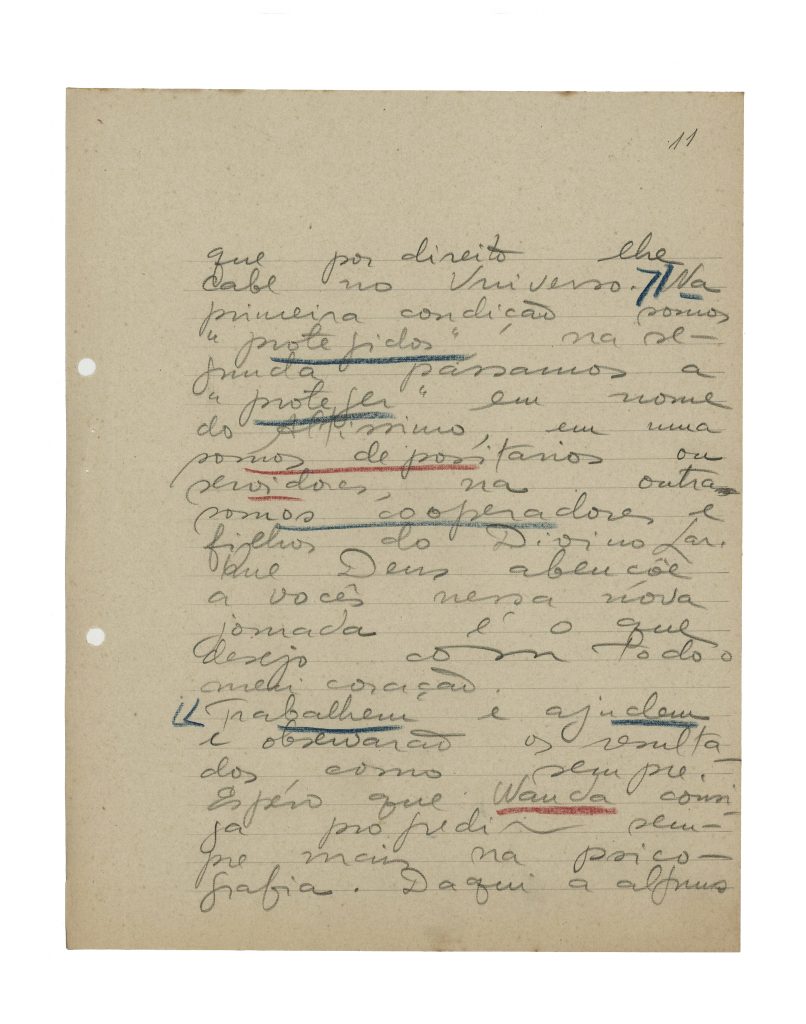 11
que por direito lhe
cabe no Universo. Na
primeira condição somos
"protegidos", na se-
gunda passamos a
"proteger" em nome
do Altissimo, em uma
somos depositarios ou
servidores, na outra
somos cooperadores e
filhos do Divino Lar.
Que Deus abençôe
a vocês nessa nova
jornada é o que
desejo com todo o
meu coração.
Trabalhem e ajudem
e observarão os resulta
dos como sempre.
Espéro que Wanda consi-
ga progredir sem-
pre mais na psico-
grafia. Daqui a alguns